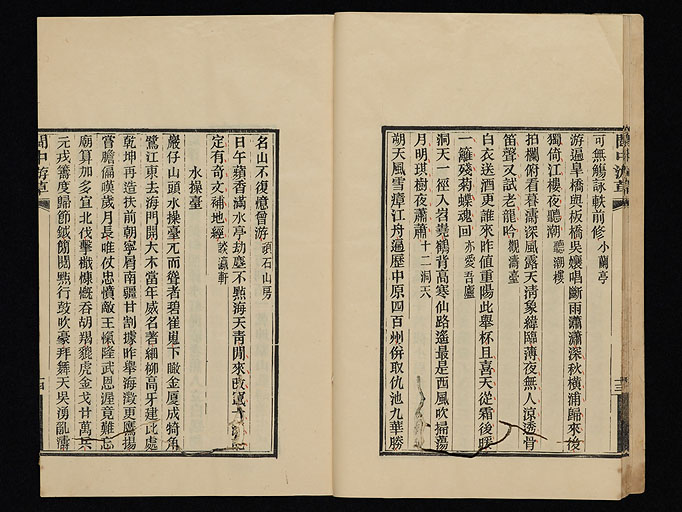 可無觴詠軼前修 小蘭亭
游遍皋橋與板橋吳孃唱斷雨瀟瀟深秋橫浦歸來後
獨倚江樓夜聽潮 聽潮樓
拍欄俯看暮濤深風露天淸象緯臨薄夜無人涼透骨
笛聲又試老龍吟 觀濤臺
白衣送酒更誰來昨値重陽此舉杯且喜天從霜後暖
一籬殘菊蝶魂回 亦愛吾廬
洞天一徑入岩嶤鶴背高寒仙路遙最是西風吹掃蕩
月明琪樹夜蕭蕭 十二洞天
朔天風雪瘴江舟遍歷中原四百州倂取仇池九華勝
閩中游草
十三
名山不復憶曾游 頑石山房
日午蘋香滿水亭劫塵不㸃海天靑閒來
定有奇文補地經 談瀛軒
水操臺
巖仔山頭水操臺兀而聳者碧崔嵬下瞰金厦成犄角
鷺江東去海門開大木當年威名著細柳高牙建此處
乾坤再造扶前朝寧屑南疆甘割據昨舉海澂更鷹揚
嘗膽偏嘆歲月長唯仗忠憤敵王愾隆武恩渥竟難忘
廟算加多宜北伐擊檝慷慨吞胡羯貔虎金戈廿萬兵
元戎籌度歸節鉞簡閱㸃行鼓吹豪拜舞天吳湧亂濤
閩中游草
十四